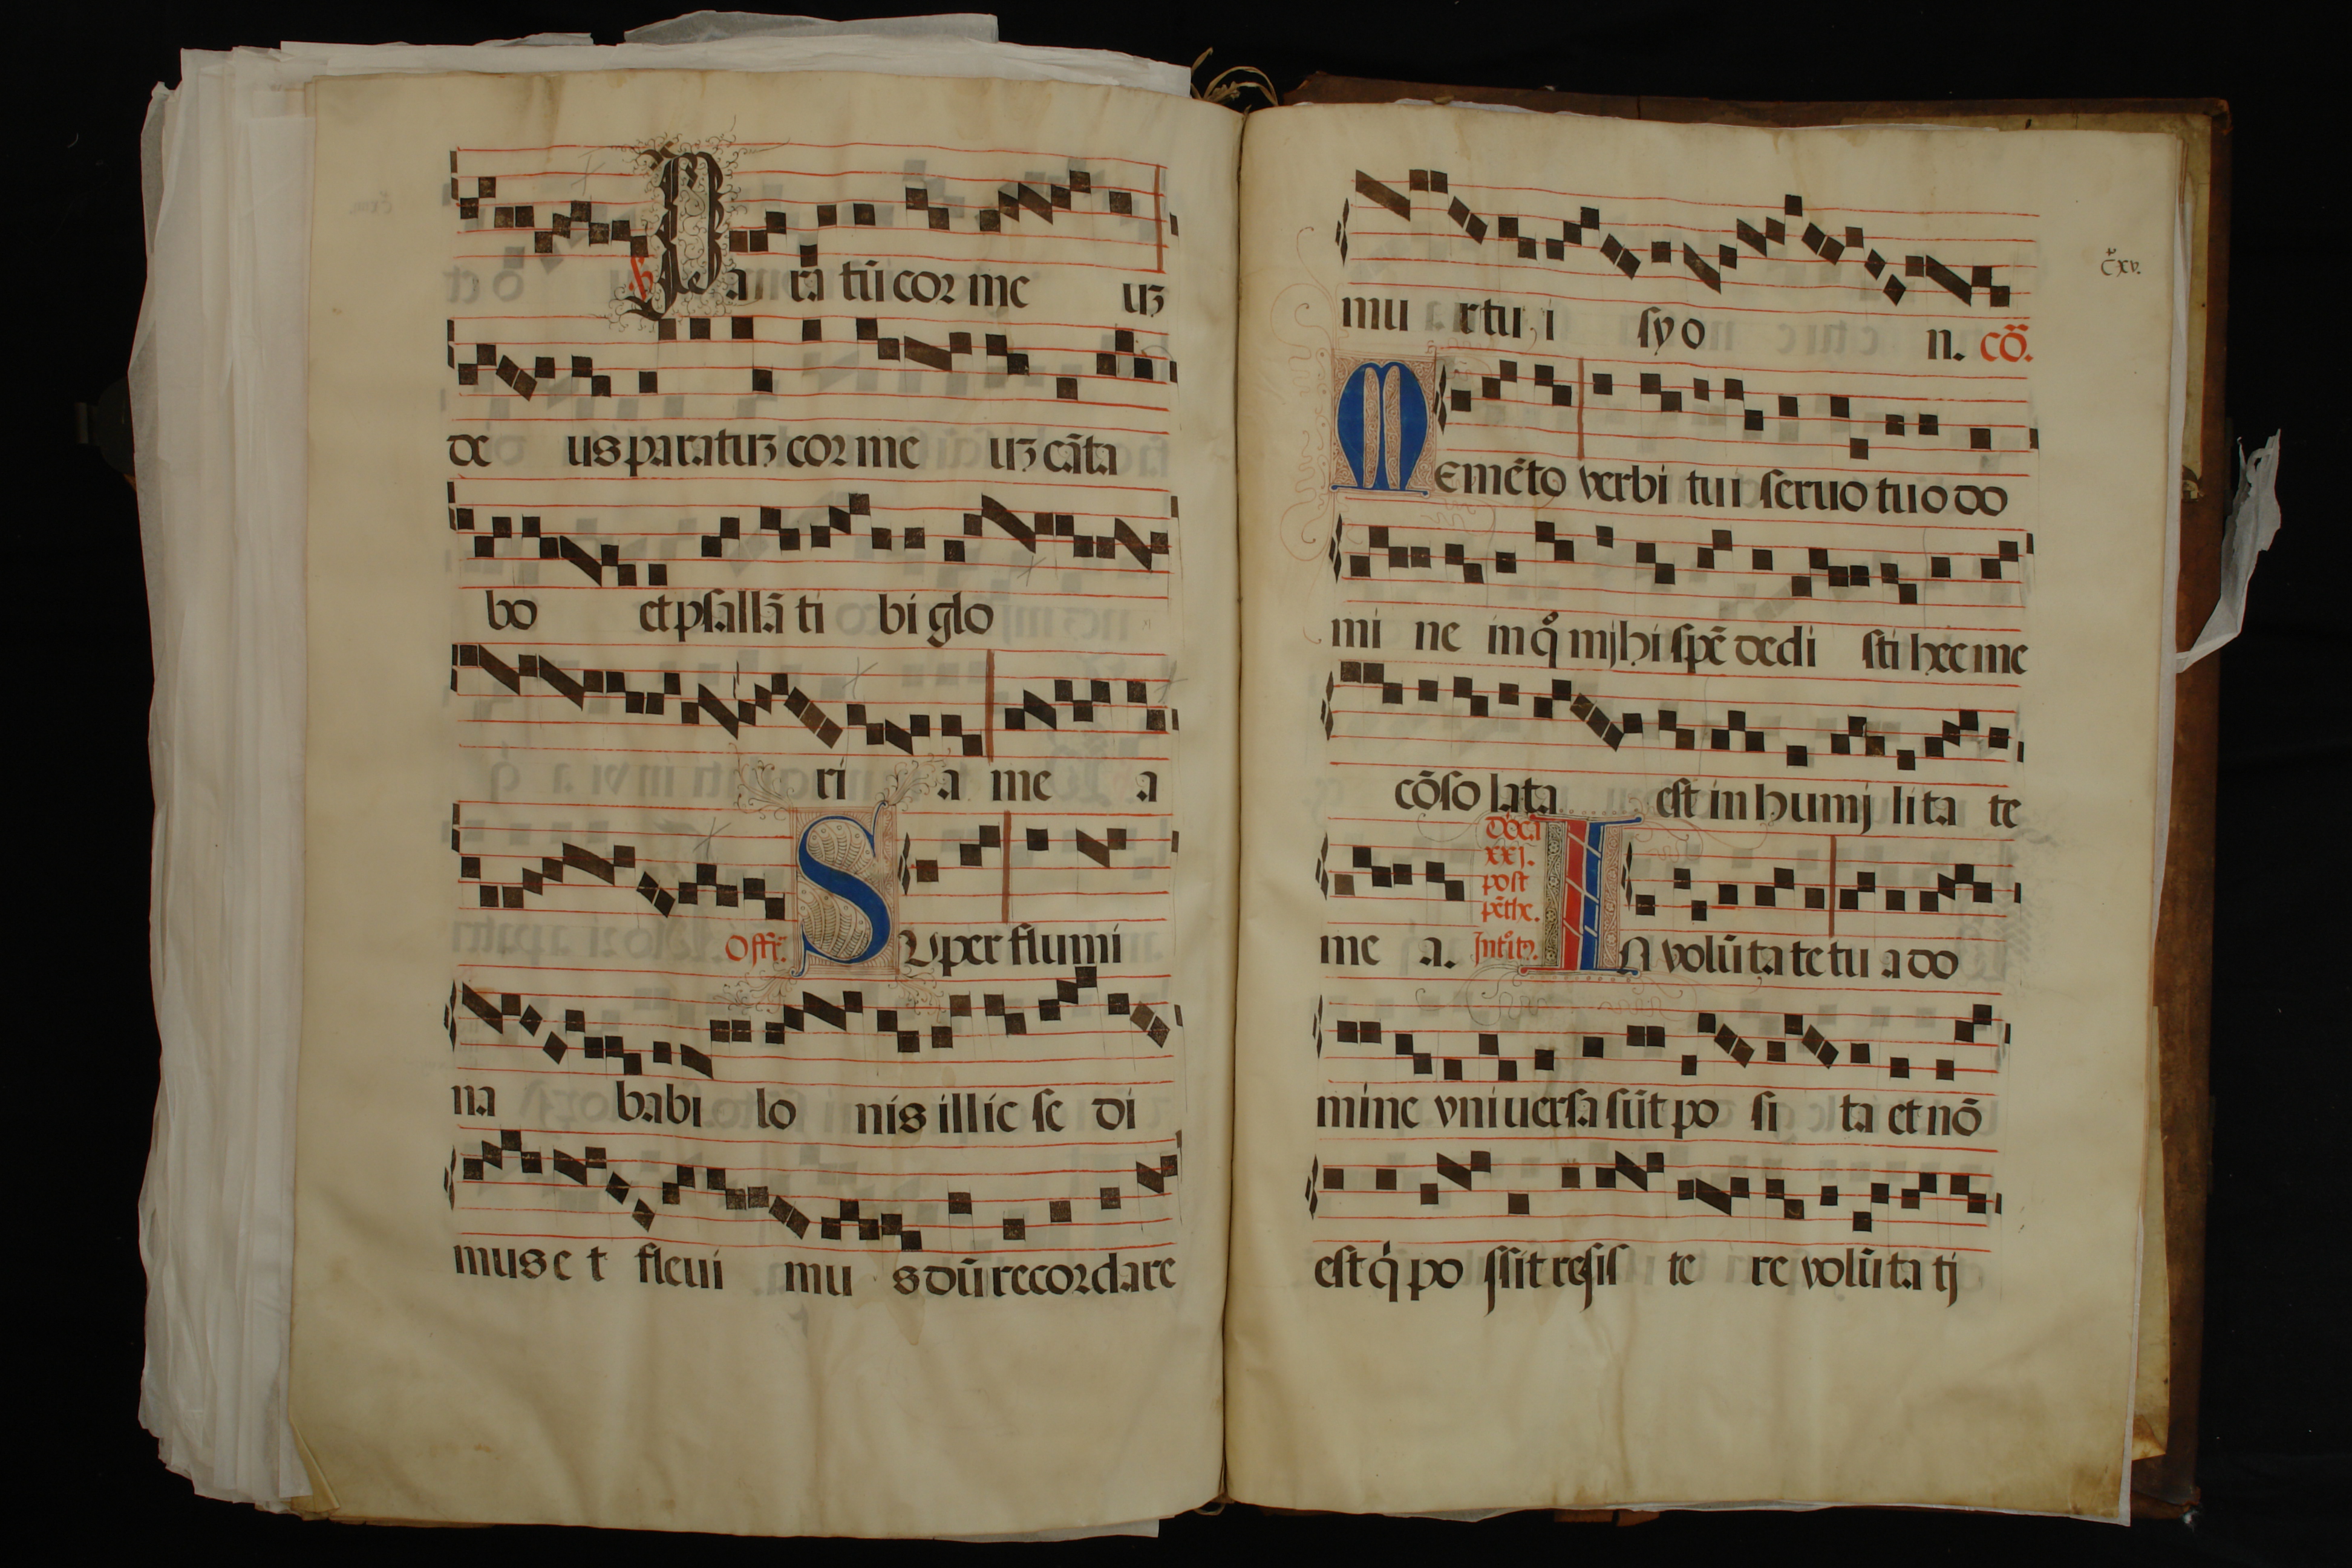 ℣ Para tū cor me uȝ
de us paratuȝ cor me uȝ cāta
bo et psallā ti bi glo
ri a me a
Offi. Super flumi
na babi lo nis illic se di
mus e t fleui mu s dū recordare
c̄xv.
mu r tu i sy o n. cō.
Memēto verbi tui seruo tuo do
mi ne in q̊ mjhi spē dedi sti hec me
cōso lata est in humj lita te
me a. Dōca xxj. post pēthe. Intoitꝰ. In volūtate tu a do
mine vniuersa sūt po si ta et nō
est q̇ po ssit resis te re volūta tj